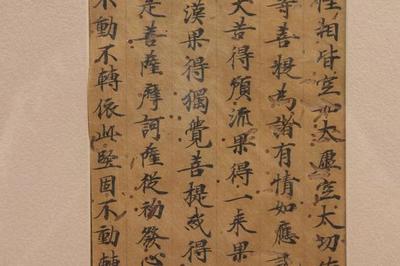 相皆空如太虛空太切
等菩提為諸有情如應
大苦得預流果得一来果
漢果得獨覺菩提或得
是菩薩摩訶薩從初發心
不動不轉依此堅固不動轉